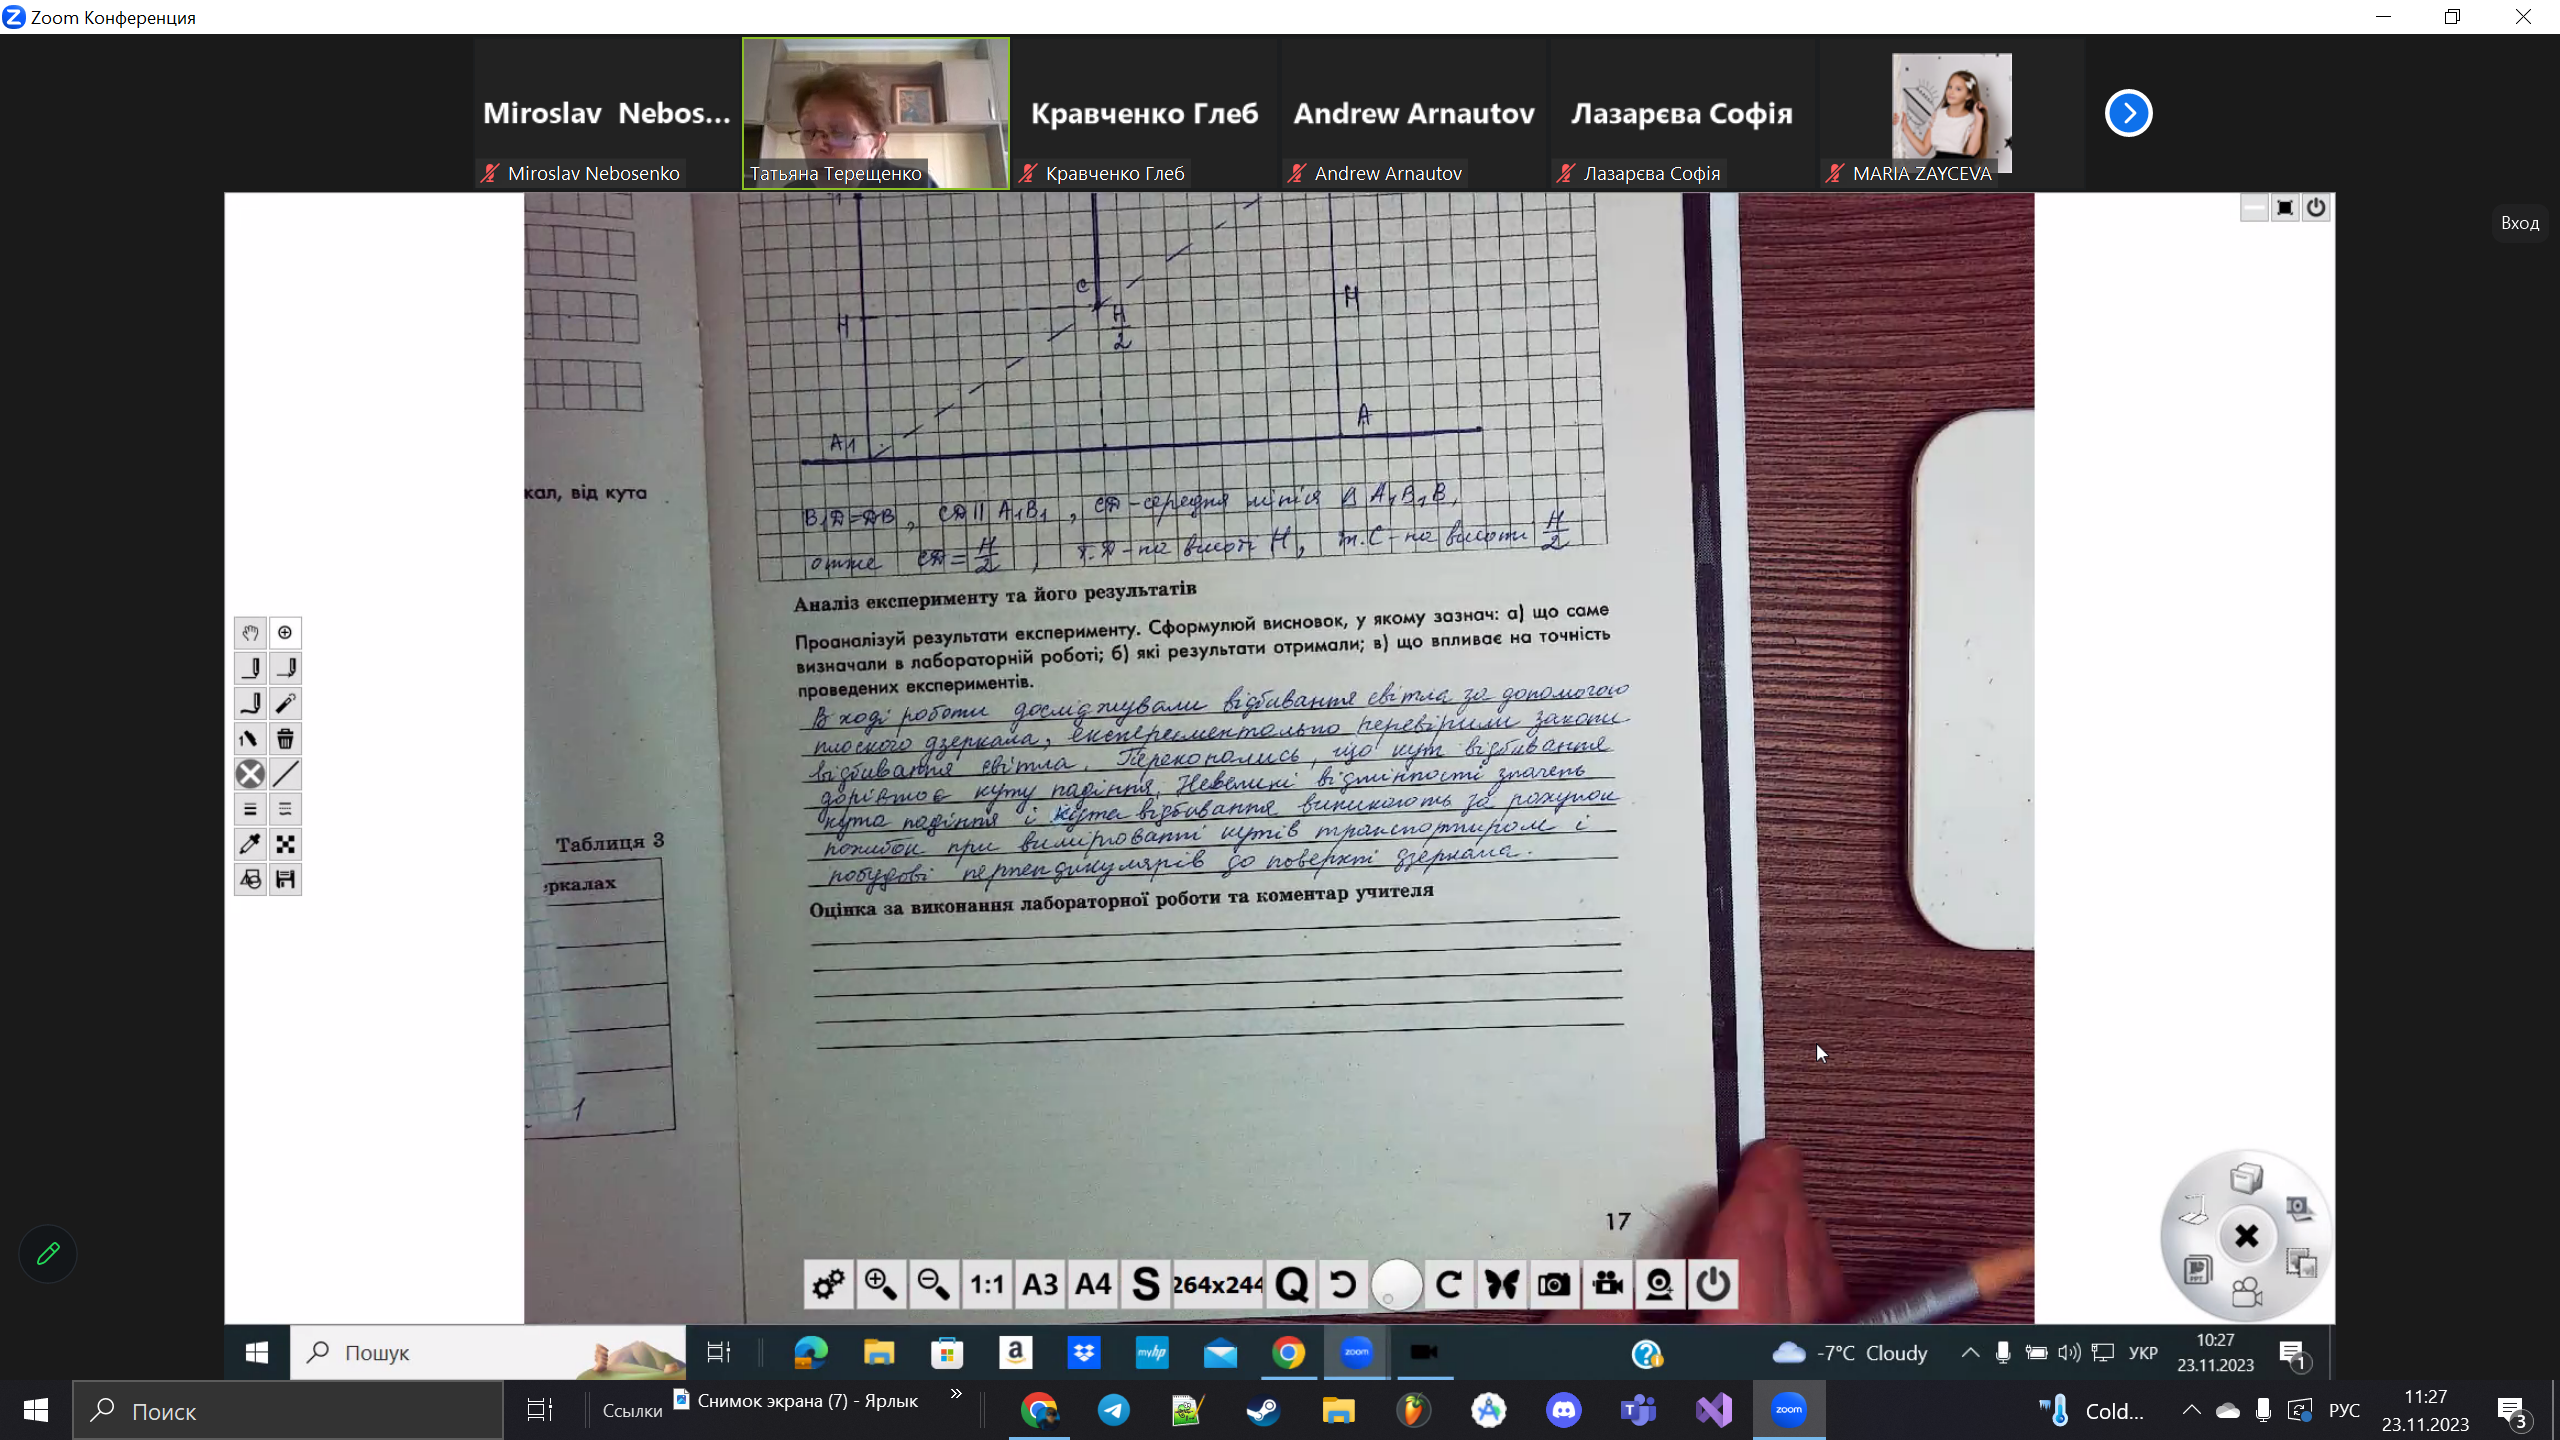 Zoom Конференция
Miroslav Nebos...
Кравченко Глеб
Andrew Arnautov
Лазарєва Софія
Miroslav Nebosenko
Татьяна Терещенко
Кравченко Глеб
Andrew Arnautov
Лазарєва Софія
MARIA ZAYCEVA
Вход
C
H
H
H
2
A1
A
B₁D=DB, CD || A₁B₁, CD-середня лінія В A₁B₁B,
отже CD = H/2, т.D-на висоті H, т.C-на висоті H/2
кал, від кута
Аналіз експерименту та його результатів
Проаналізуй результати експерименту. Сформулюй висновок, у якому зазнач: а) що саме
визначали в лабораторній роботі; б) які результати отримали; в) що впливає на точність
проведених експериментів.
В ході роботи досліджували відбивання світла за допомогою
плоского дзеркала, експериментально перевірили закони
відбивання світла. Переконались, що кут відбивання
дорівнює куту падіння. Невеликі відмінності значень
кута падіння і кута відбивання виникають за рахунок
похибок при вимірюванні кутів транспортиром і
побудові перпендикулярів до поверхні дзеркала.
Таблиця 3
еркалах
1
Оцінка за виконання лабораторної роботи та коментар учителя
17
1:1 A3 A4 S 264x244 Q
PPT
Пошук
a
myhp
zoom
-7°C Cloudy
УКР
10:27
23.11.2023
1
Поиск
Ссылки
Снимок экрана (7) - Ярлык
»
zoom
Cold...
РУС
11:27
23.11.2023
3